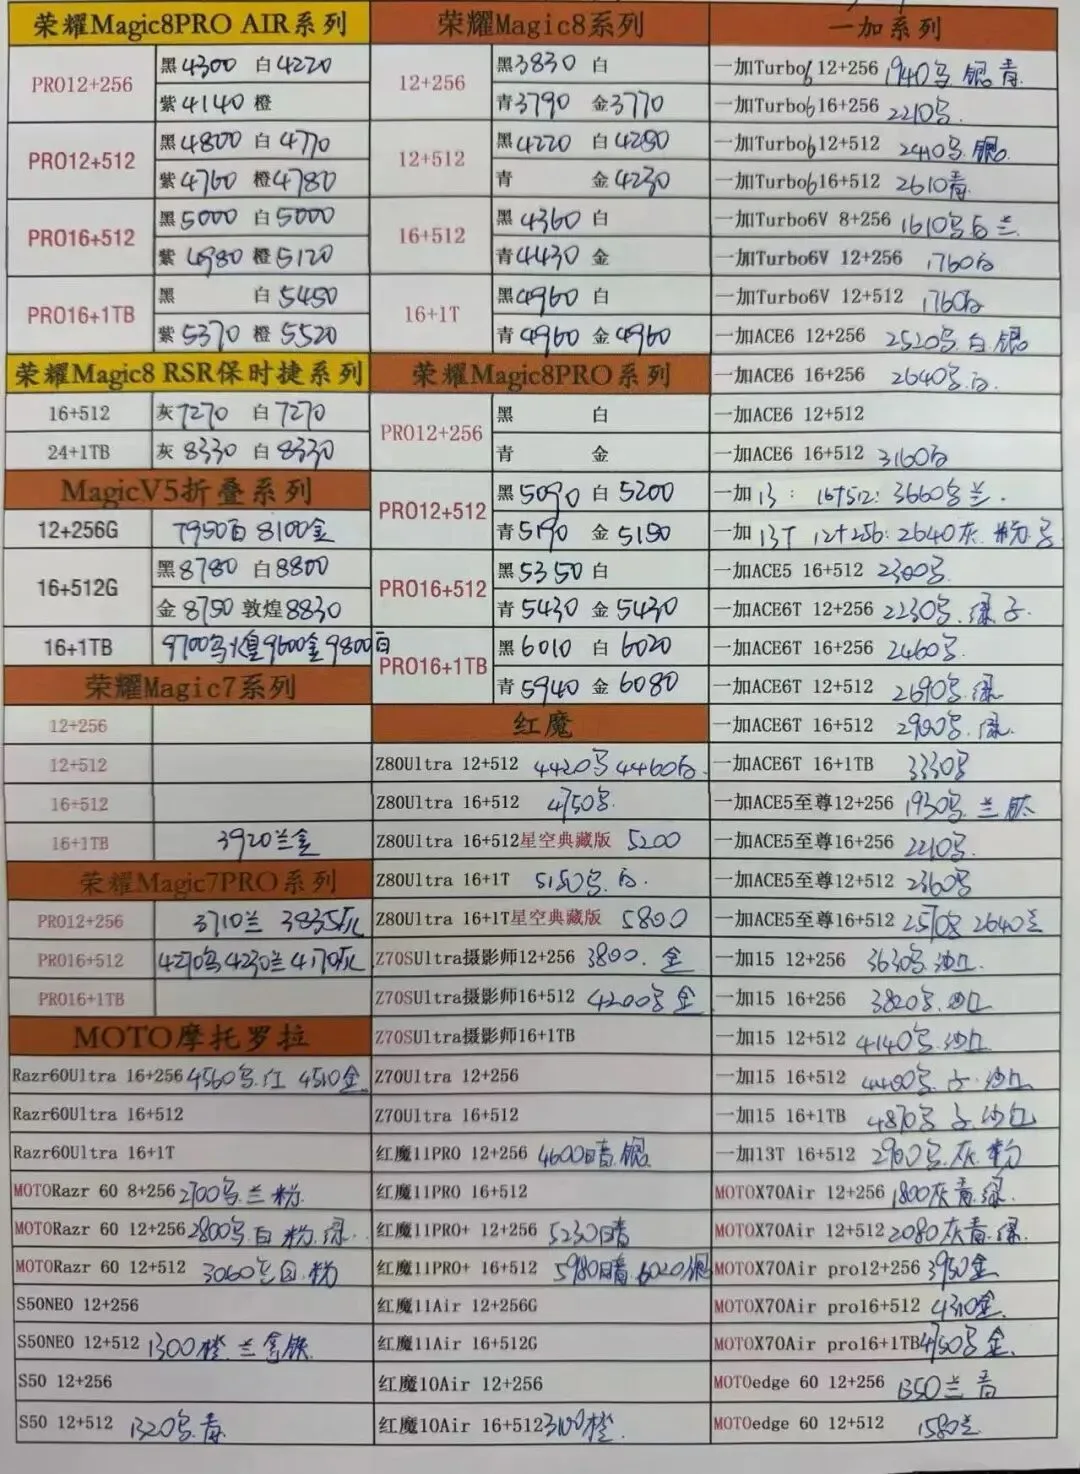 荣耀Magic8PRO AIR系列
PRO12+256 黑4300 白4220
紫4140 橙
PRO12+512 黑4800 白4770
紫4760 橙4780
PRO16+512 黑5000 白5000
紫4980 橙5120
PRO16+1TB 黑 白5450
紫5370 橙5520
荣耀Magic8 RSR保时捷系列
16+512 灰7270 白7270
24+1TB 灰8330 白8330
MagicV5折叠系列
12+256G 7950白 8100金
16+512G 黑8780 白8800
金8750 敦煌8830
16+1TB 9700 煌9600金9800白
荣耀Magic7系列
12+256
12+512
16+512
16+1TB 3920兰金
荣耀Magic7PRO系列
PRO12+256 3710兰 3835
PRO16+512 4230兰
PRO16+1TB
MOTO摩托罗拉
Razr60Ultra 16+256 4560 红 4510金
Razr60Ultra 16+512
Razr60Ultra 16+1T
MOTORazr 60 8+256 2700 兰 粉
MOTORazr 60 12+256 2800 白 粉 绿
MOTORazr 60 12+512 3060 白 粉
S50NEO 12+256
S50NEO 12+512 1300橙 兰
S50 12+256
S50 12+512 1320 青
荣耀Magic8系列
12+256 黑3830 白
青3790 金3770
12+512 黑4220 白4250
青 金4230
16+512 黑4360 白
青4430 金
16+1T 黑4960 白
青4960 金4960
荣耀Magic8PRO系列
PRO12+256 黑 白
青 金
PRO12+512 黑5090 白5200
青5190 金5190
PRO16+512 黑5350 白
青5430 金5430
PRO16+1TB 黑6010 白6020
青5940 金6080
红魔
Z80Ultra 12+512 4420 4460白
Z80Ultra 16+512 4750
Z80Ultra 16+512星空典藏版 5200
Z80Ultra 16+1T 5150 白
Z80Ultra 16+1T星空典藏版 5800
Z70SUltra摄影师12+256 3800 金
Z70SUltra摄影师16+512 4200 金
Z70SUltra摄影师16+1TB
Z70Ultra 12+256
Z70Ultra 16+512
红魔11PRO 12+256 4600暗 银
红魔11PRO 16+512
红魔11PRO+ 12+256 5230暗
红魔11PRO+ 16+512 5980暗 6020银
红魔11Air 12+256G
红魔11Air 16+512G
红魔10Air 12+256
红魔10Air 16+512 3100橙
一加系列
一加Turbo6 12+256 1940 银 青
一加Turbo6 16+256 2210
一加Turbo6 12+512 2410 银
一加Turbo6 16+512 2610青
一加Turbo6V 8+256 1610 白 兰
一加Turbo6V 12+256 1760白
一加Turbo6V 12+512 1760白
一加ACE6 12+256 2520 白 银
一加ACE6 16+256 2640 白
一加ACE6 12+512
一加ACE6 16+512 3160白
一加13: 16+512: 3660 兰
一加13T 12+256: 2640灰 粉
一加ACE5 16+512 2300
一加ACE6T 12+256 2230 绿
一加ACE6T 16+256 2460
一加ACE6T 12+512 2690 绿
一加ACE6T 16+512 绿
一加ACE6T 16+1TB 3330
一加ACE5至尊12+256 1930 兰 钛
一加ACE5至尊16+256 2210
一加ACE5至尊12+512 2360
一加ACE5至尊16+512 2640兰
一加15 12+256 3630
一加15 16+256 3820
一加15 12+512 4140
一加15 16+512 4400
一加15 16+1TB 4870
一加13T 16+512 灰 粉
MOTOX70Air 12+256 1800灰 青 绿
MOTOX70Air 12+512 2080灰 青 绿
MOTOX70Air pro12+256 3950金
MOTOX70Air pro16+512 4310金
MOTOX70Air pro16+1TB 4750 金
MOTOedge 60 12+256 1350兰 青
MOTOedge 60 12+512 1580兰